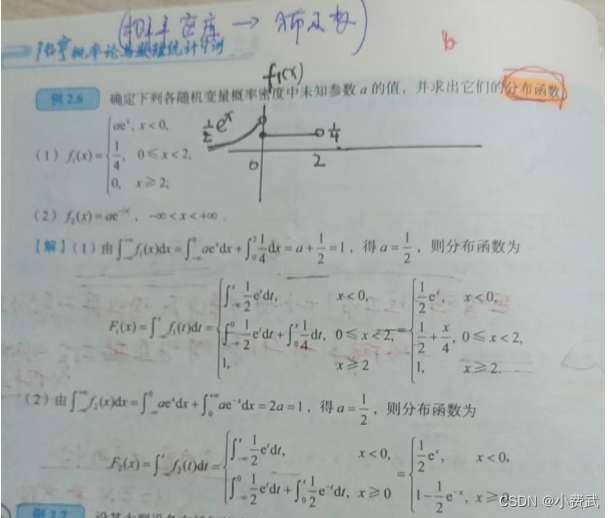 (概率密度 → 分布函数)
张宇概率论与数理统计9讲
b
f₁(x)
例 2.6 确定下列各随机变量概率密度中未知参数 a 的值，并求出它们的分布函数。
(1) f₁(x)={aeˣ, x<0, 1/4, 0≤x<2, 0, x≥2;
1/2 eˣ 1/4
0 2
(2) f₂(x)=ae^(-|x|), -∞<x<+∞.
【解】(1) 由∫_{-∞}^{+∞}f₁(x)dx=∫_{-∞}^{0}aeˣdx+∫_{0}^{2}1/4dx=a+1/2=1，得 a=1/2，则分布函数为
F₁(x)=∫_{-∞}^{x}f₁(t)dt={∫_{-∞}^{x}1/2eᵗdt, x<0, ∫_{-∞}^{0}1/2eᵗdt+∫_{0}^{x}1/4dt, 0≤x<2, 1, x≥2 ={1/2eˣ, x<0, 1/2+x/4, 0≤x<2, 1, x≥2.
(2) 由∫_{-∞}^{+∞}f₂(x)dx=∫_{-∞}^{0}aeˣdx+∫_{0}^{+∞}ae⁻ˣdx=2a=1，得 a=1/2，则分布函数为
F₂(x)=∫_{-∞}^{x}f₂(t)dt={∫_{-∞}^{x}1/2eᵗdt, x<0, ∫_{-∞}^{0}1/2eᵗdt+∫_{0}^{x}1/2e⁻ᵗdt, x≥0 ={1/2eˣ, x<0, 1-1/2e⁻ˣ, x≥0.
例 2.7
CSDN @小费武